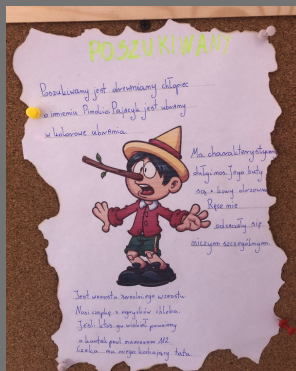 POSZUKIWANY
Poszukiwany jest drewniany chłopiec
o imieniu Pinokio. Pajacyk jest ubrany
w kolorowe ubrania.
Ma charakterystyczny
długi nos. Jego buty
są z kory drzewa.
Ręce nie
odznaczały się
niczym szczególnym.
Jest wzrostu średniego wzrostu.
Nosi czapkę z
Jeśli ktoś go widział prosimy
o kontakt pod numerem 112.
Czeka na niego kochający tata.